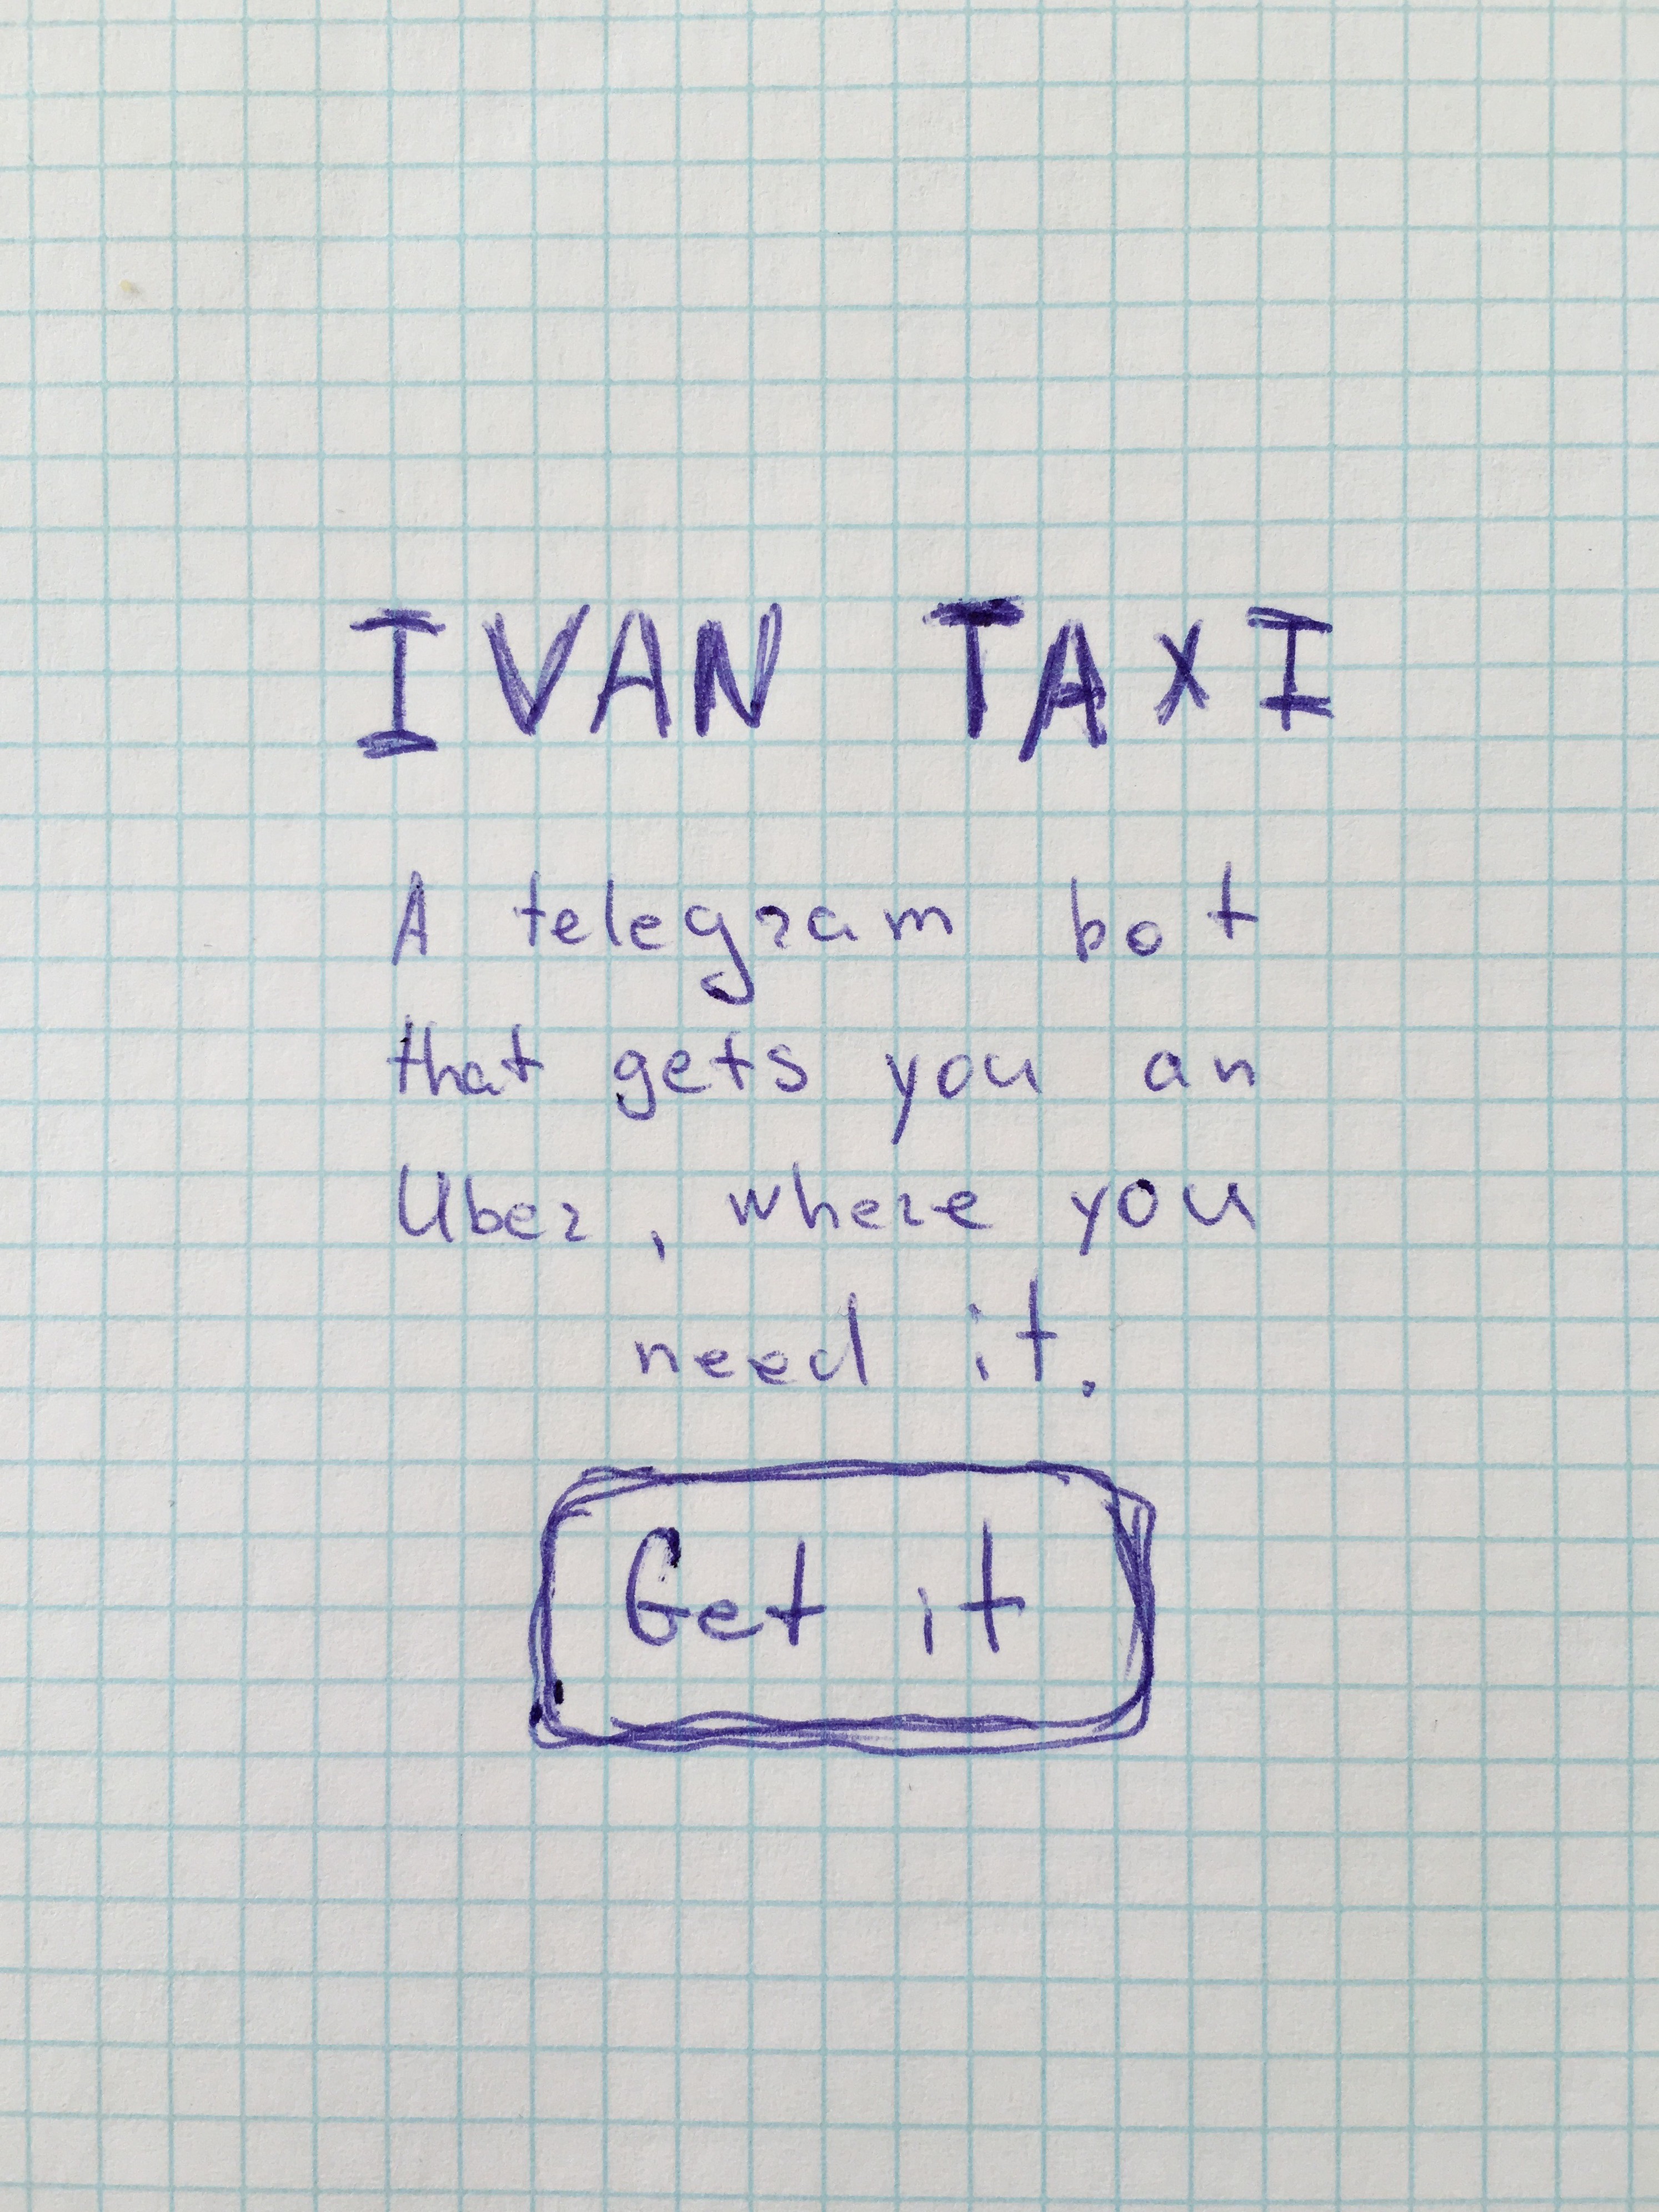 IVAN TAXI
A telegram bot
that gets you an
Uber, where you
need it.
Get it